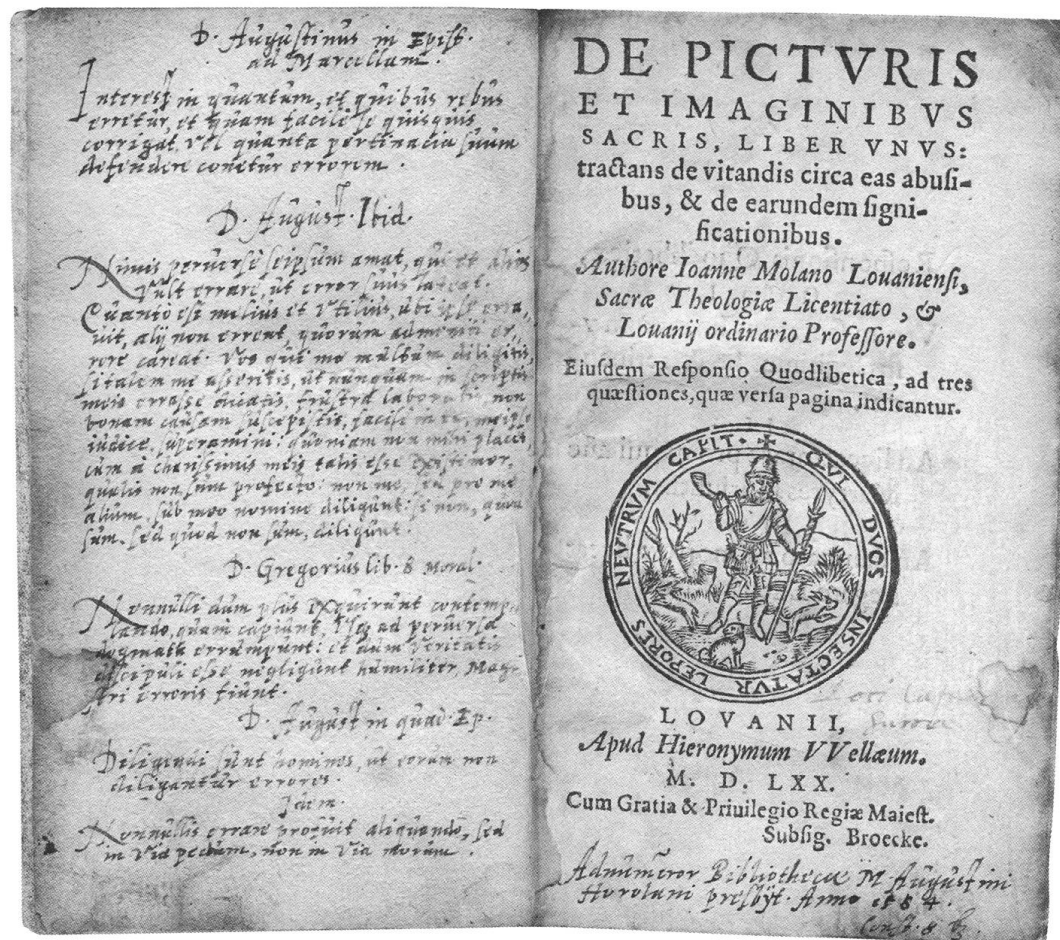 D. Augustinus in Epist.
ad Marcellam.
Interest in quantum, et quibus rebus
erretur, et quam facile se quisquis
corrigat, vel quanta pertinacia suum
defendere conetur errorem.
D. August. Ibid.
Nimis perverse seipsum amat, qui et alios
vult errare, ut error suus lateat.
Quanto est melius et utilius, ubi ipse erra,
vit, alij non errent, quorum admonitu er,
rore careat. Vos qui me multum diligitis,
si talem me asseritis, ut nunquam in scriptis
meis errasse dicatis, frustra laboratis, non
bonam causam suscepistis, facile in ea, me ipso
iudice, superamini: quoniam non mihi placet
cum a charissimis meis talis esse existimor,
qualis non sum profecto: non me, sed pro me
alium, sub meo nomine diligunt: si non, quod
sum, sed quod non sum, diligunt.
D. Gregorius lib. 8 Moral.
Nonnulli dum plus exquirunt contemp
lando, quam capiunt, usq ad perversa
dogmata errumpunt: et dum veritatis
discipuli esse negligunt humiliter, Magi
stri erroris fiunt.
D. August in quad. Ep.
Diligendi sunt homines, ut eorum non
diligantur errores.
Idem.
Nonnullis errare profuit aliquando, sed
in via pedum, non in via morum.
DE PICTVRIS
ET IMAGINIBVS
SACRIS, LIBER VNVS:
tractans de vitandis circa eas abusi-
bus, & de earundem signi-
ficationibus.
Authore Ioanne Molano Louaniensi,
Sacræ Theologiæ Licentiato, &
Louanij ordinario Professore.
Eiusdem Responsio Quodlibetica, ad tres
quæstiones, quæ versa pagina indicantur.
QVI DVOS INSECTATVR LEPORES NEVTRVM CAPIT
LOVANII,
Apud Hieronymum VVellæum.
M. D. LXX.
Cum Gratia & Priuilegio Regiæ Maiest.
Subsig. Broecke.
Adnumeror Bibliothecæ M. Augustini
Horolani presbyt. Anno 1584.